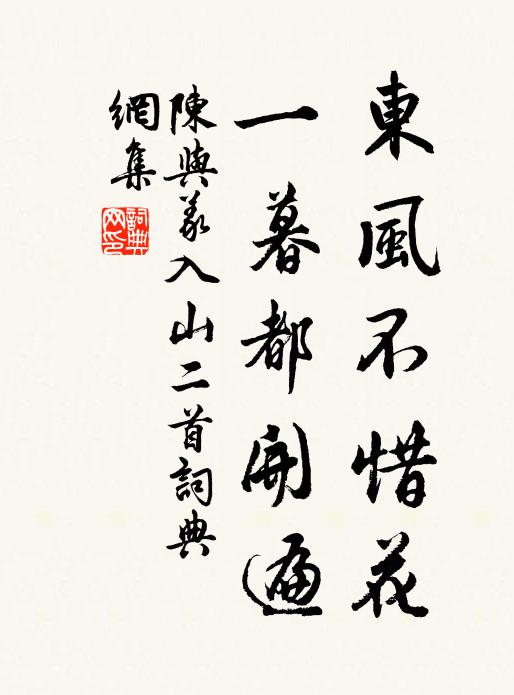 東風不惜花
一暮都開遍
陳與義入山二首詞典
網集
詞典
网印